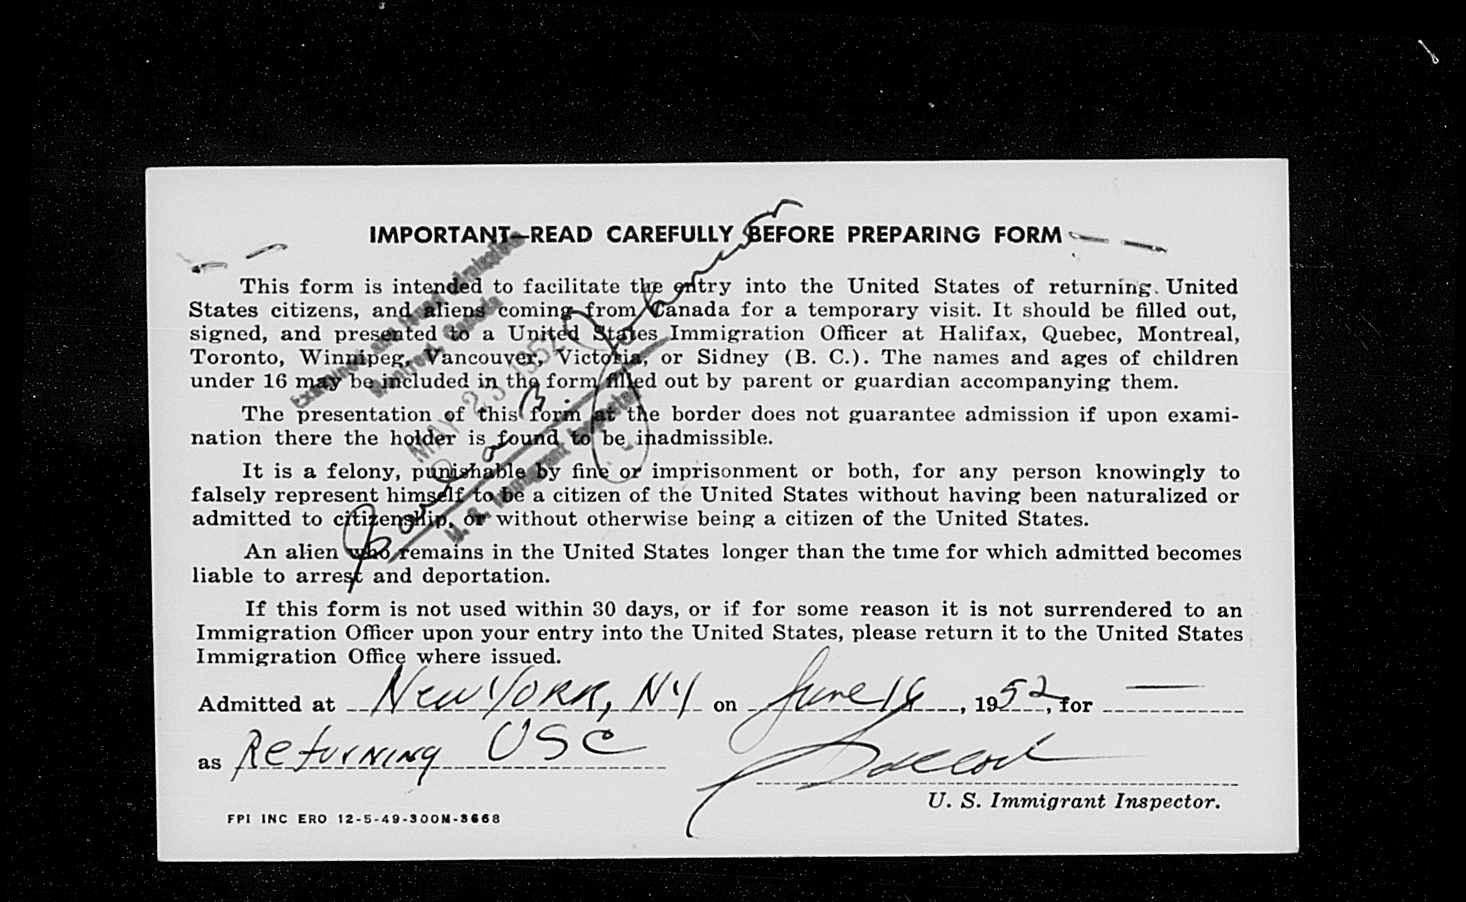 IMPORTANT—READ CAREFULLY BEFORE PREPARING FORM
This form is intended to facilitate the entry into the United States of returning United
States citizens, and aliens coming from Canada for a temporary visit. It should be filled out,
signed, and presented to a United States Immigration Officer at Halifax, Quebec, Montreal,
Toronto, Winnipeg, Vancouver, Victoria, or Sidney (B. C.). The names and ages of children
under 16 may be included in the form filled out by parent or guardian accompanying them.
The presentation of this form at the border does not guarantee admission if upon exami-
nation there the holder is found to be inadmissible.
It is a felony, punishable by fine or imprisonment or both, for any person knowingly to
falsely represent himself to be a citizen of the United States without having been naturalized or
admitted to citizenship, or without otherwise being a citizen of the United States.
An alien who remains in the United States longer than the time for which admitted becomes
liable to arrest and deportation.
If this form is not used within 30 days, or if for some reason it is not surrendered to an
Immigration Officer upon your entry into the United States, please return it to the United States
Immigration Office where issued.
Admitted at New York, NY on June 16, 1952, for —
as Returning USC
U. S. Immigrant Inspector.
FPI INC ERO 12-5-49-300M-3668
Examined and found admissible
Montreal, Canada
MAY 23 1952
U. S. Immigrant Inspector